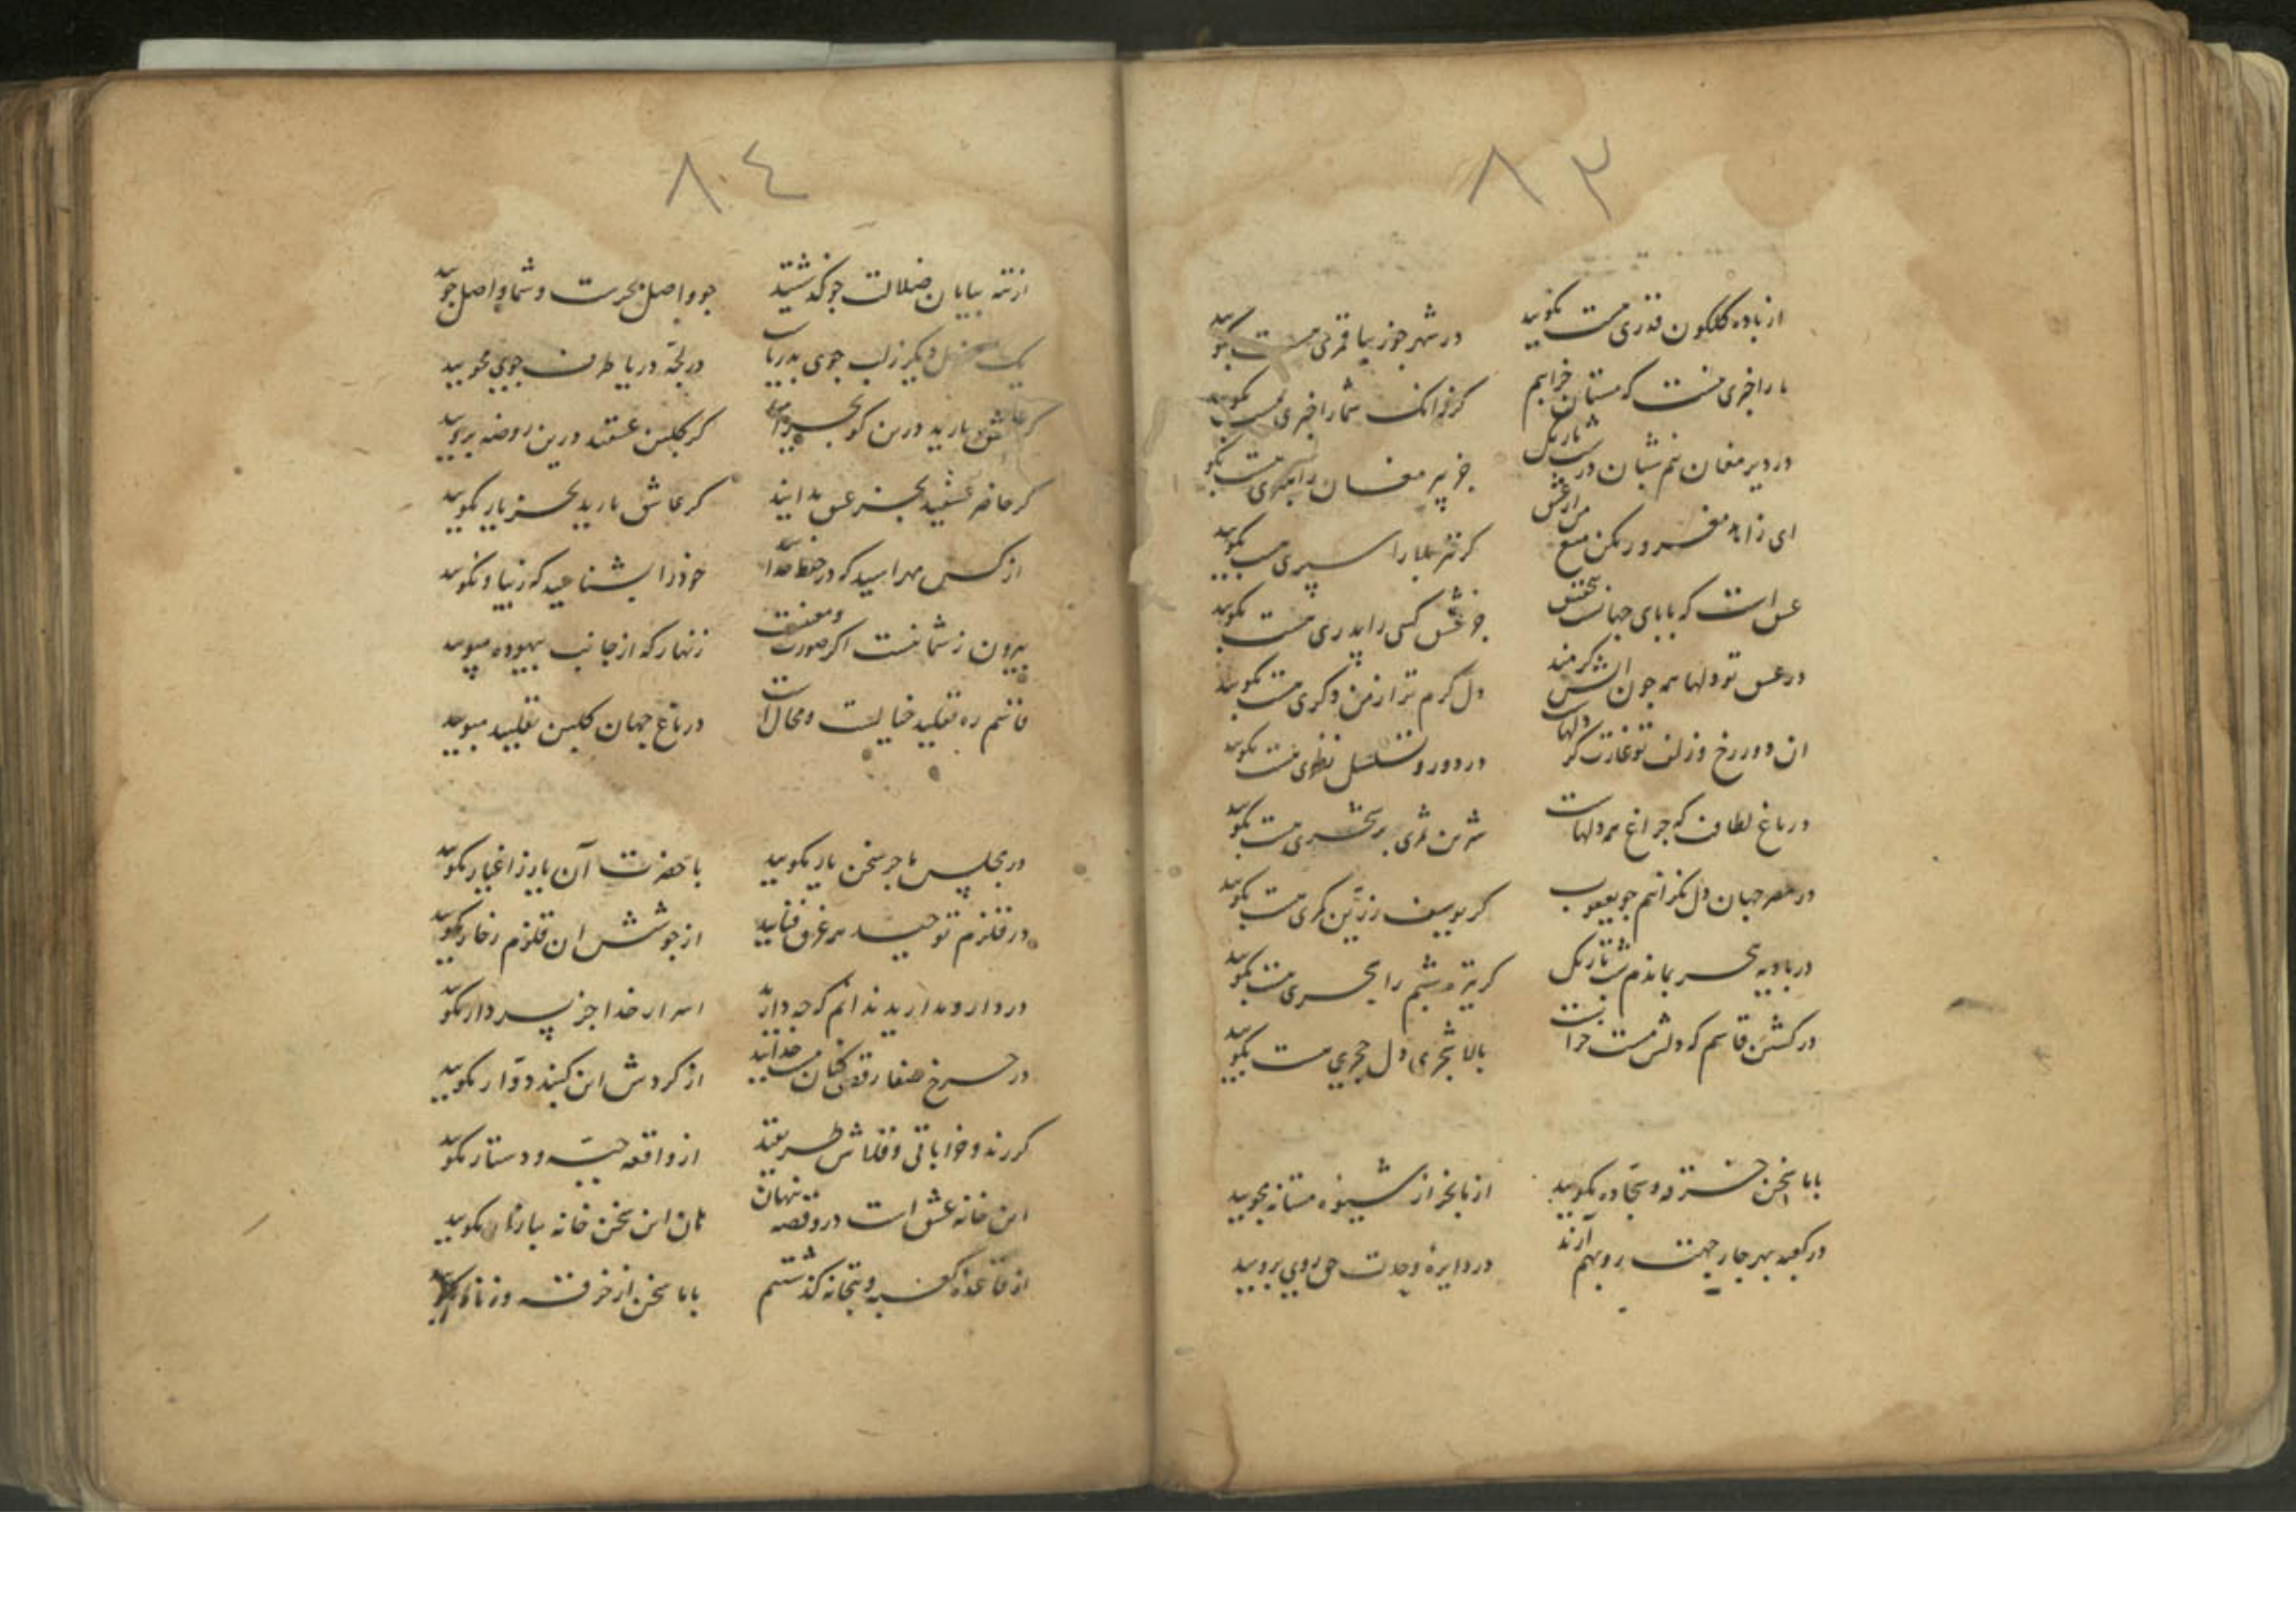 ۸۳
از باده گلگون قدری هست بگویید
در شهر جو زیبا قمری هست بگویید
ما را خبری نیست که مستان خرابیم
گر زانک شما را خبری هست بگویید
در دیر مغان نیم شبان در شب تاریک
جز پیر مغان راهبری هست بگویید
ای زاهد مغرور مکن منع من از عشق
گر تیر بلا را سپری هست بگویید
عشق است که بابای جهانست بتحقیق
جز عشق کسی را پدری هست بگویید
در عشق تو دلها همه چون آتش گرمند
دل گرم تر از من دگری هست بگویید
ان دور رخ و زلف تو غارت گر دلهاست
در دور و تسلسل نظری هست بگویید
در باغ لطافت که چراغ همه دلهاست
شیرین ثمری بر شجری هست بگویید
در مصر جهان دل نگرانیم جو یعقوب
گر یوسف زرین کمری هست بگویید
در بادیه هجر بماندم شب تاریک
گر تیره شبم را سحری هست بگویید
در گلشن قاسم که دلش مست خرابست
بالا شجری دل حجری هست بگویید
با ما سخن خرقه و سجاده مگویید
از ما بجز از شیوه مستانه مجویید
در کعبه بهر چار جهت رو بهم آرند
در دایره وحدت حق روی برویید
۸۴
از تیه بیابان ضلالت جو گذشتید
جو واصل بحرست و شما واصل جویید
یک منزل دیگر ز لب جوی بدریاست
در لجه دریا طرف جوی مجویید
گر عاشق یارید درین کو بخرامید
گر گلبن عشقند درین روضه برویید
گر حاضر عشقید بجز عشق مدانید
گر عاشق یارید بجز یار مگویید
از کس مهراسید که در حفظ خدایید
خود را بشناسید که زیبا و نکویید
بیرون ز شما نیست اگر صورت و معنیست
زنهار که از جانب بیهوده مپویید
قاسم ره تقلید خیالست و محالست
در باغ جهان گلبن تقلید مبویید
در مجلس ما جز سخن یار مگویید
با حضرت آن یار ز اغیار مگویید
در قلزم توحید همه غرق فنایید
از جوشش ان قلزم زخار مگویید
در دار و مدارید ندانم که جه دارید
اسرار خدا جز بسر دار مگویید
در چرخ صفا رقص کنان مست خدایید
از گردش این گنبد دوار مگویید
گر رند و خراباتی و قلاش طریقید
از واقعه جبه و دستار مگویید
این خانه عشق است درو قصه نهان
هان این سخن خانه ببازار مگویید
از قاعده کعبه و بتخانه گذشتیم
با ما سخن از خرقه و زنار مگویید